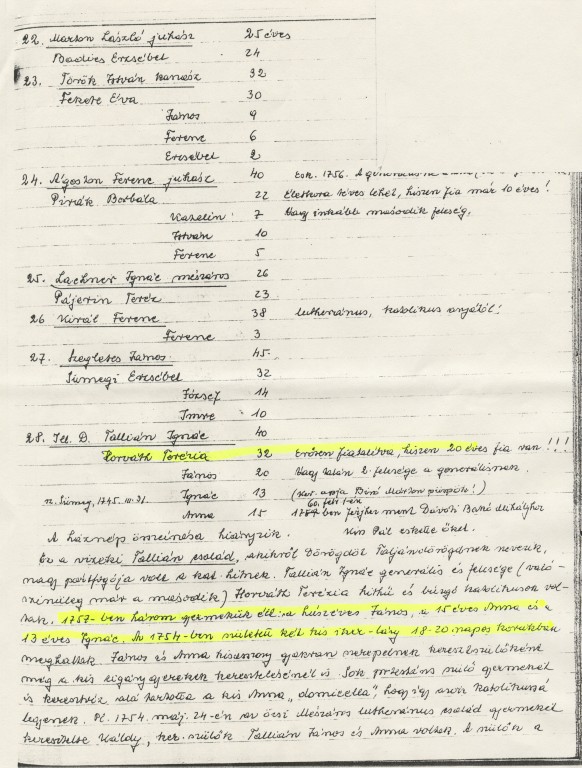 22. Marton László juhász 25 éves
Badics Erzsébet 24
23. Török István kanász 32
Fekete Éva 30
János 9
Ferenc 6
Erzsébet 2
24. Ágoston Ferenc juhász 40 Esk. 1756. A
Pirrák Borbála 22 Életkora téves lehet, hiszen fia már 10 éves!
Katalin 7 Vagy inkább második feleség.
István 10
Ferenc 5
25. Lachner Ignác mészáros 26
Pájerin Teréz 23
26 Királ Ferenc 38 lutheránus, katolikus anyától!
Ferenc 3
27. Szegletes János 45
Sümegi Erzsébet 32
József 14
Imre 10
28. Tek. D. Tallián Ignác 40
Horváth Terézia 32 Erősen fiatalítva, hiszen 20 éves fia van!!!
János 20 Vagy talán 2. felesége a generálisnak.
n. Sümeg, 1745. III. 31. Ignác 13 (Ker. apja Bíró Márton püspök!)
60. febr.
Anna 15 1757-ben férjhez ment Dávoti Bakó Mihályhoz
A háznép összeírása hiányzik. Kiss Pál eskette őket.
Ez a vizeki Tallián család, akikről Dörögdöt Taljándörögdnek nevezik,
nagy pártfogója volt a kat. hitnek. Tallián Ignác generális és felesége (való-
színűleg már a második) Horváth Terézia hithű és buzgó katolikusok vol-
tak. 1757-ben három gyermekük élt: a húszéves János, a 15 éves Anna és a
13 éves Ignác. Az 1754-ben született két kis iker-lány 18-20 napos korukban
meghaltak. János és Anna kisasszony gyakran szerepelnek keresztszülőként
még a kis cigánygyerekek keresztelésénél is. Sok protestáns szülő gyermekét
is keresztvíz alá tartotta a kis Anna „domicella", hogy így azok katolikussá
legyenek. Pl. 1754. máj. 24-én az öcsi Mészáros lutheránus család gyermekét
keresztelte Káldy, ker. szülők Tallián János és Anna voltak. A szülők a